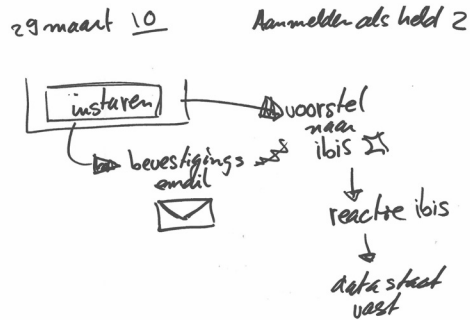 29 maart 10
Aanmelden als held 2
insturen
voorstel
naar
ibis
bevestigings
email
reactie ibis
data staat
vast